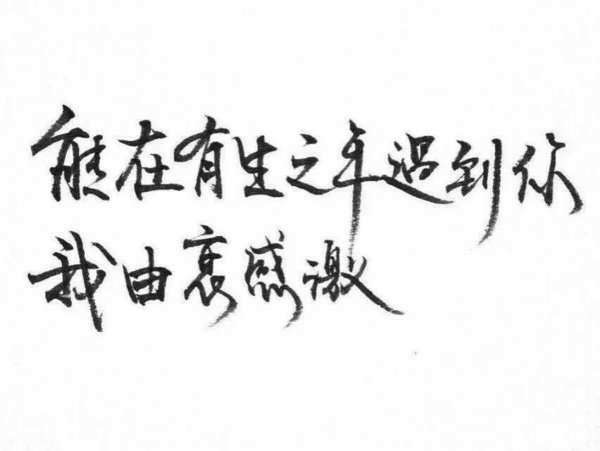 能在有生之年遇到你
我由衷感激